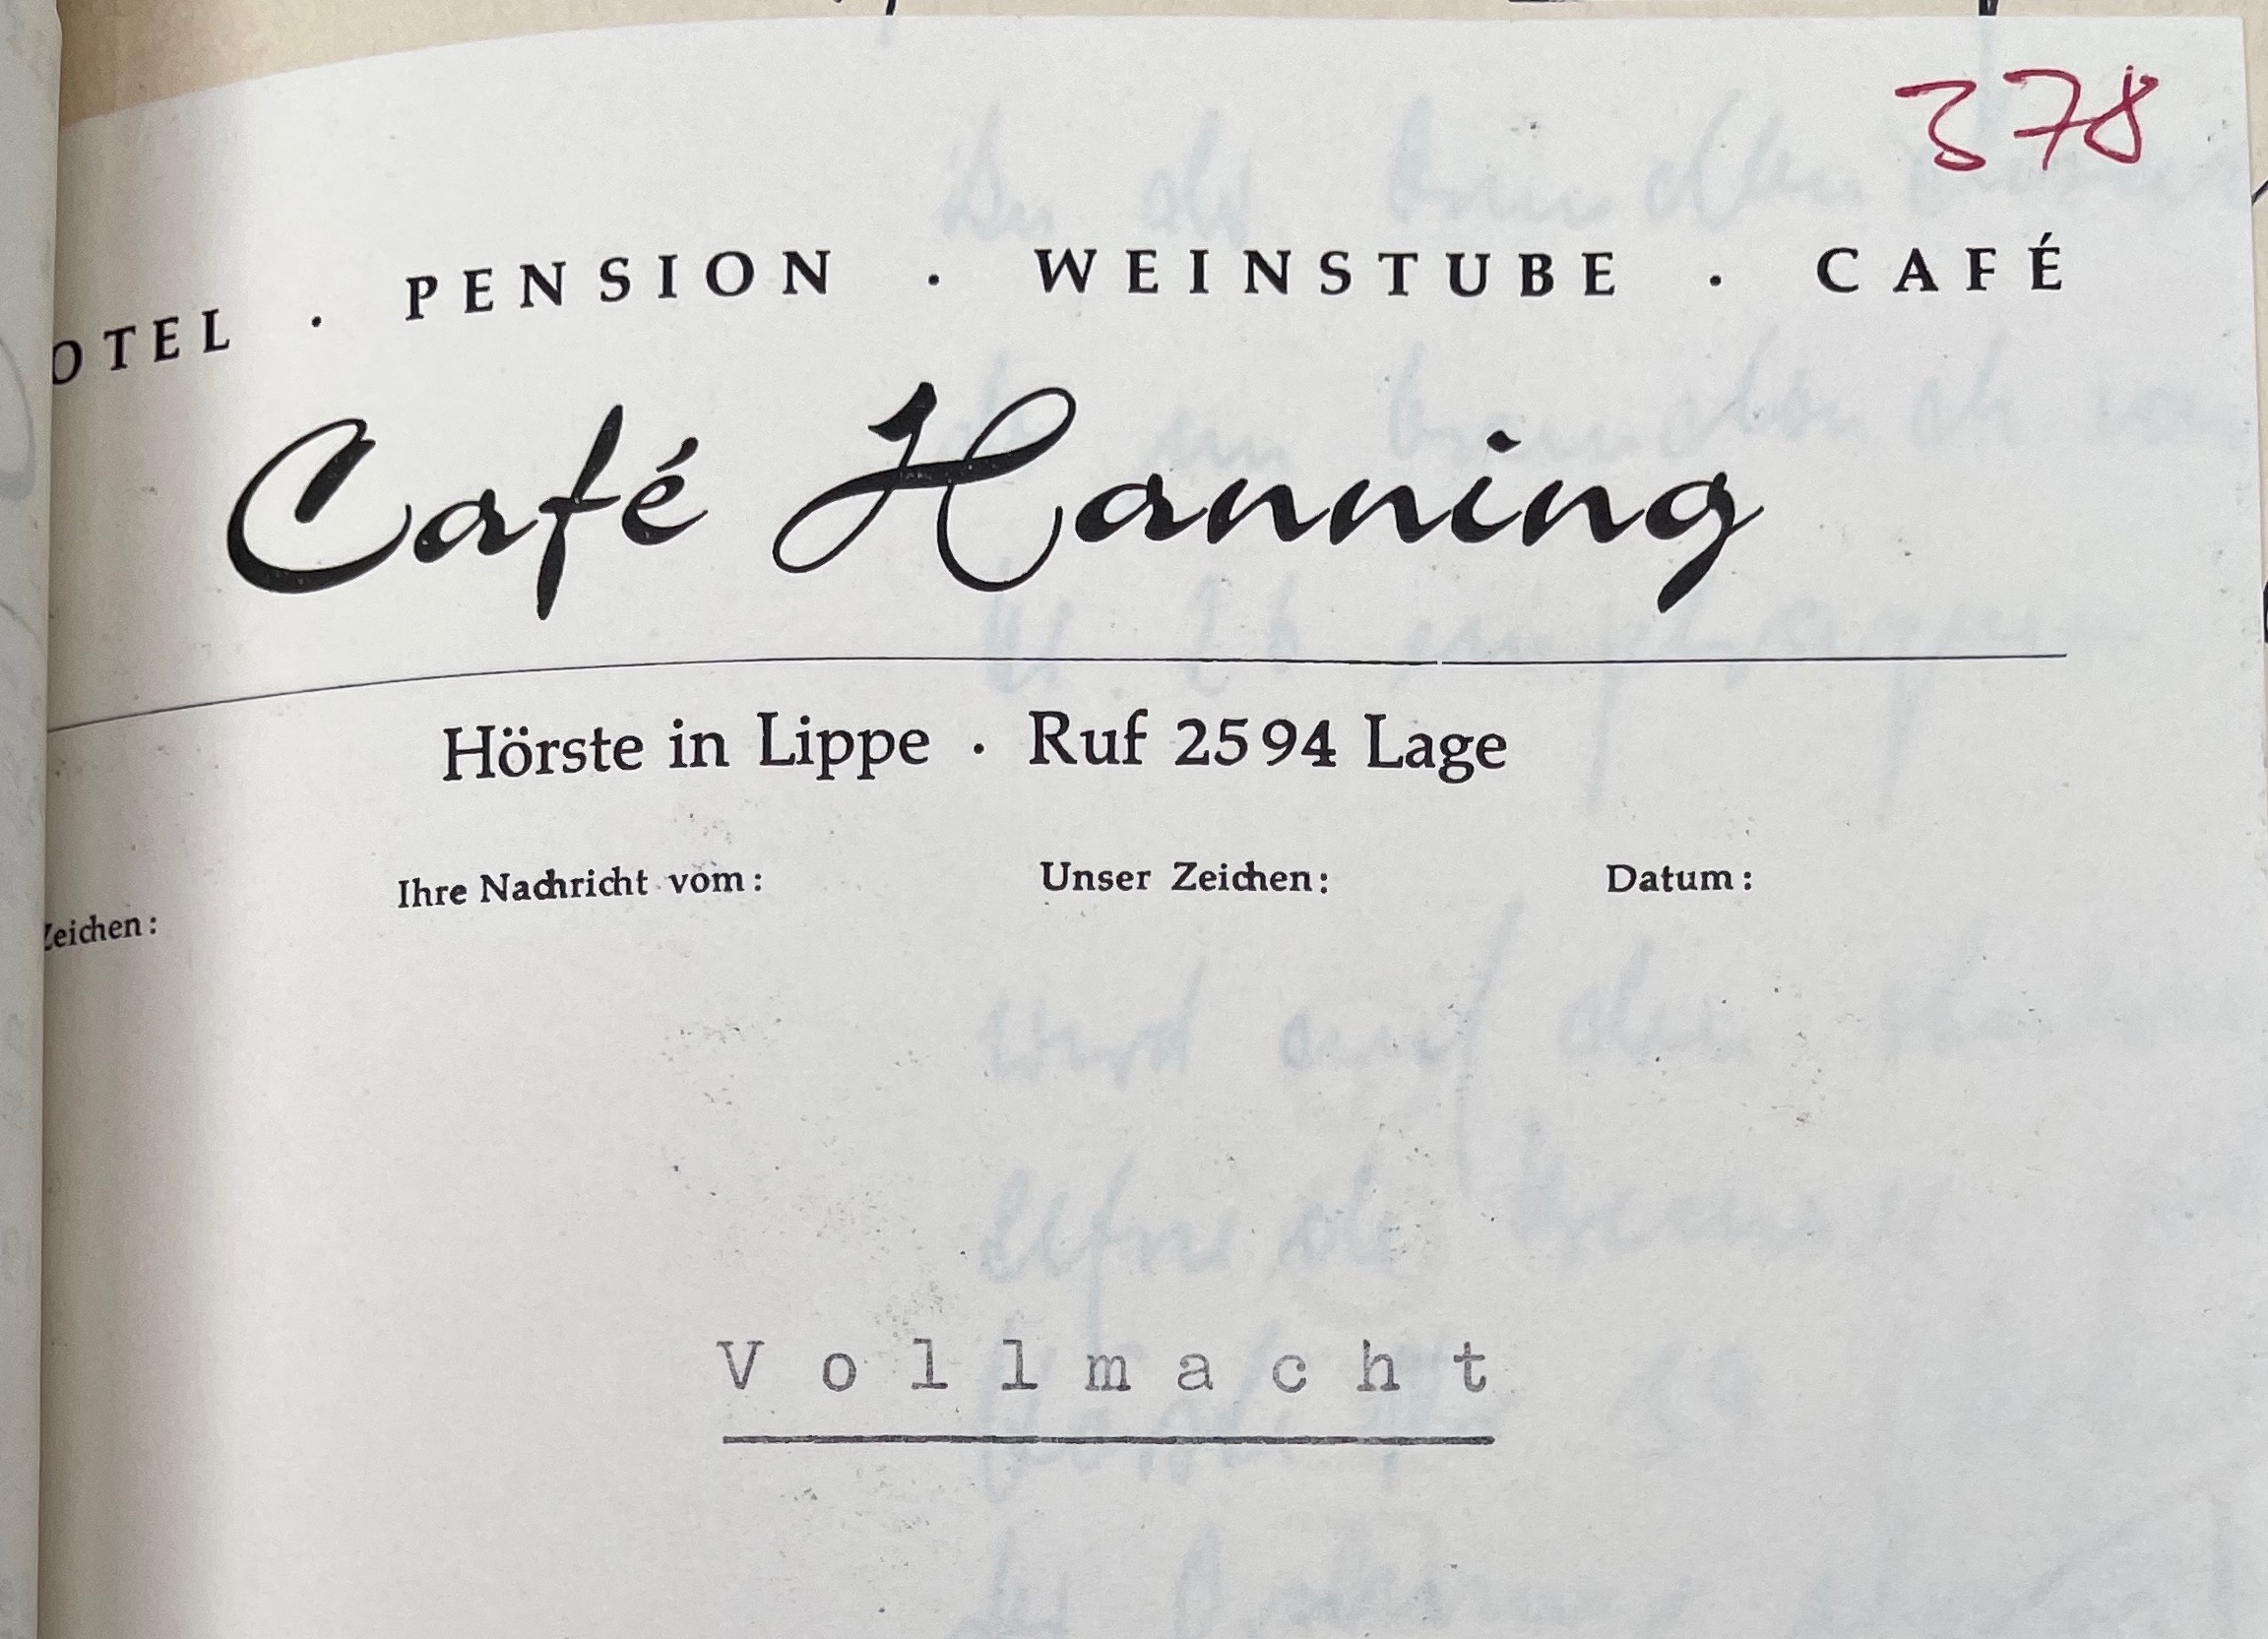 378
OTEL · PENSION · WEINSTUBE · CAFÉ
Café Hanning
Hörste in Lippe · Ruf 2594 Lage
Zeichen: Ihre Nachricht vom: Unser Zeichen: Datum:
Vollmacht